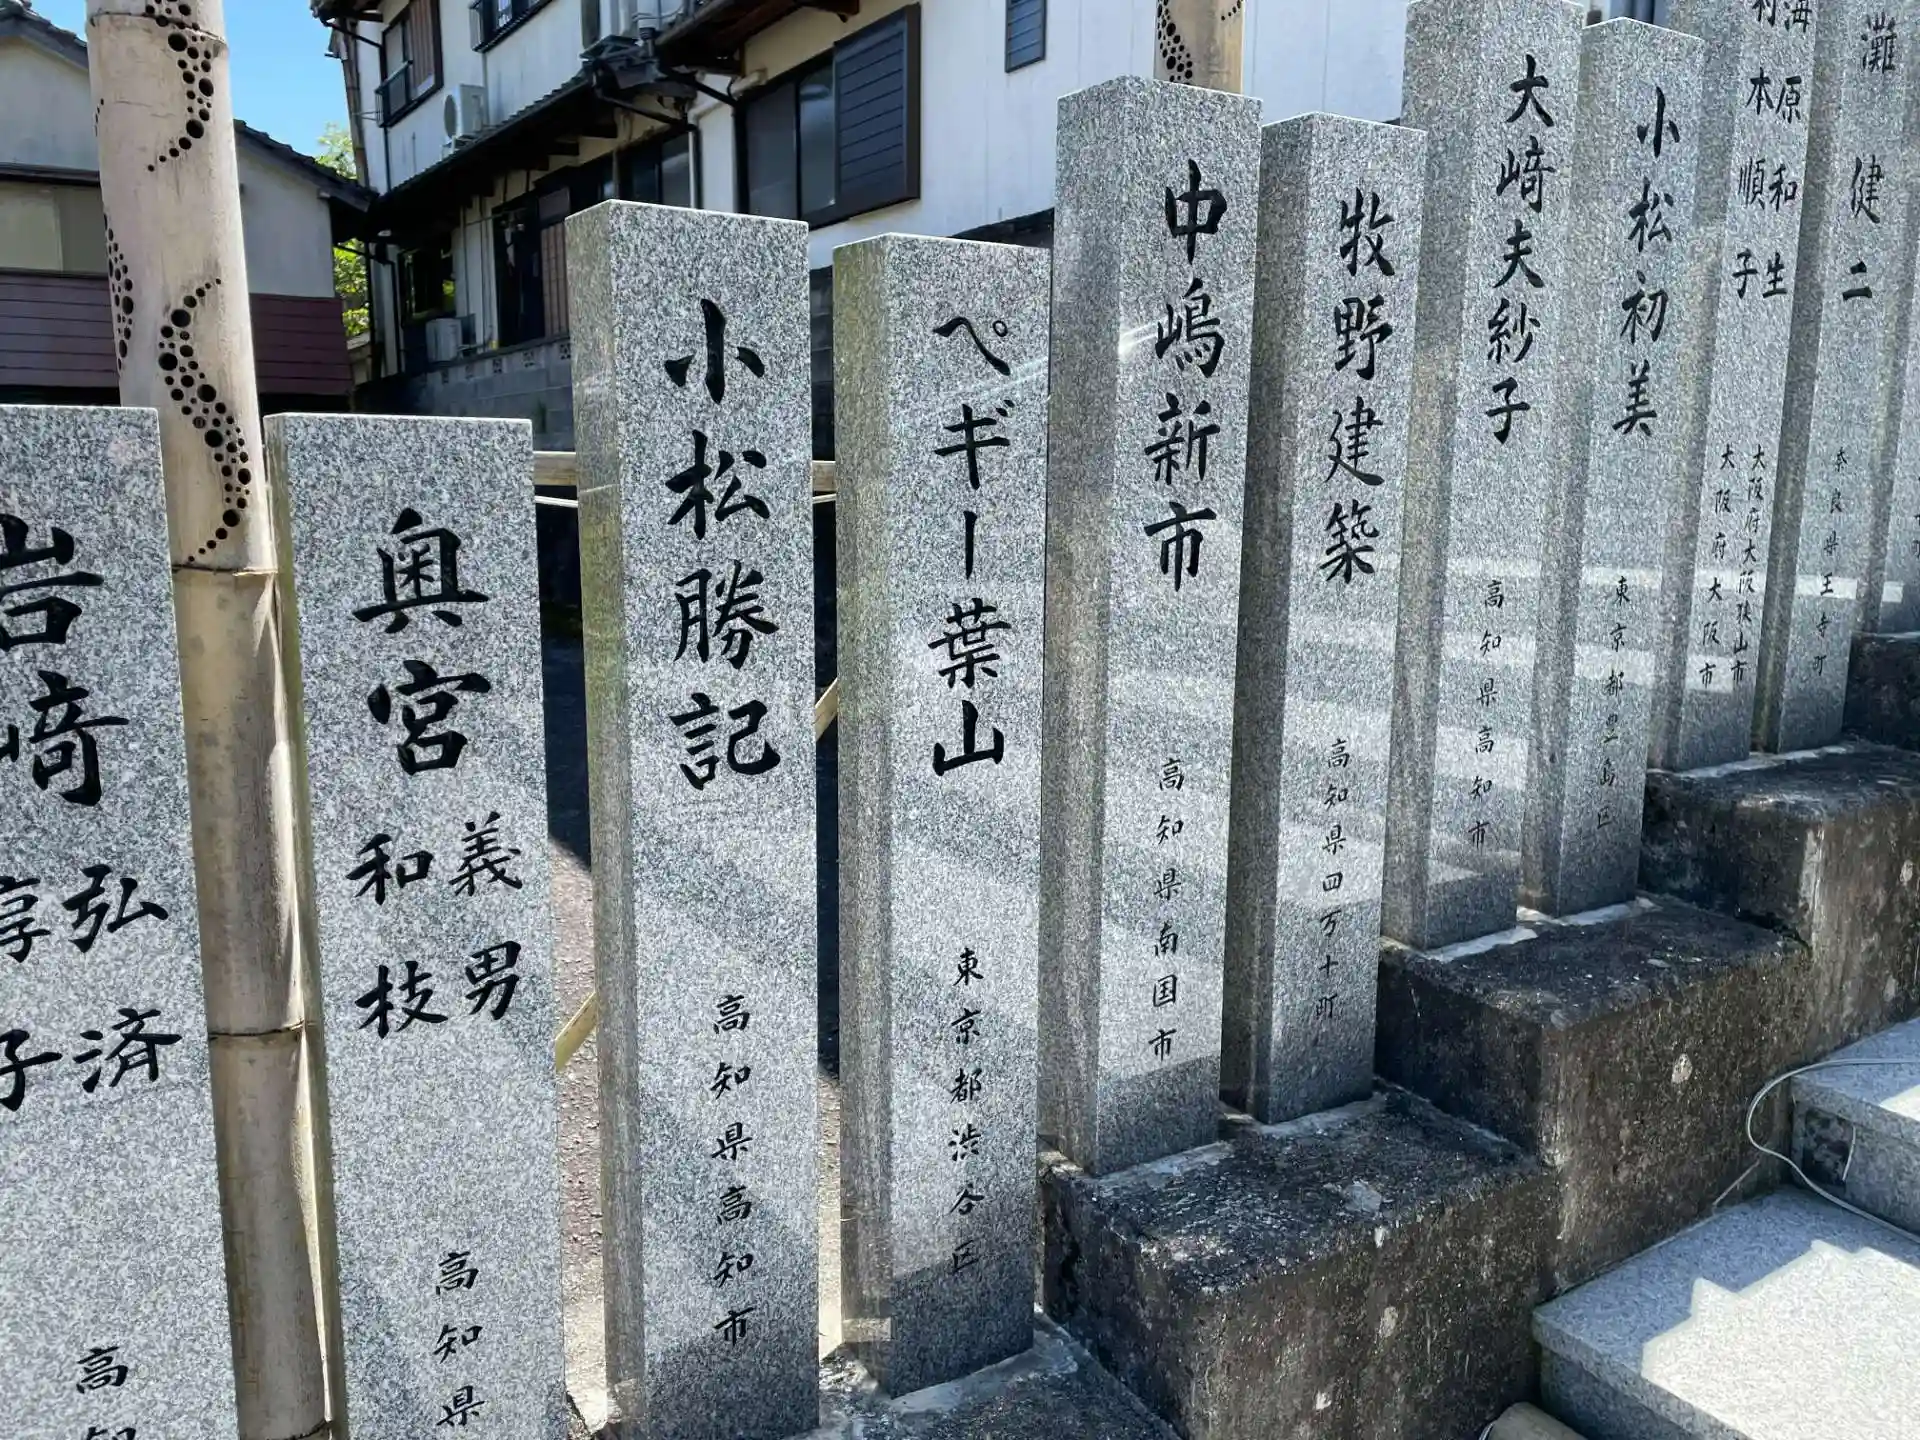 岩崎
弘済
淳子
高知
奥宮
義男
和枝
高知県
小松勝記
高知県高知市
ペギー葉山
東京都渋谷区
中嶋新市
高知県南国市
牧野建築
高知県四万十町
大﨑夫紗子
高知県高知市
小松初美
東京都豊島区
海原和生
大阪府大阪狭山市
村本順子
大阪府大阪市
灘健二
奈良県王寺町